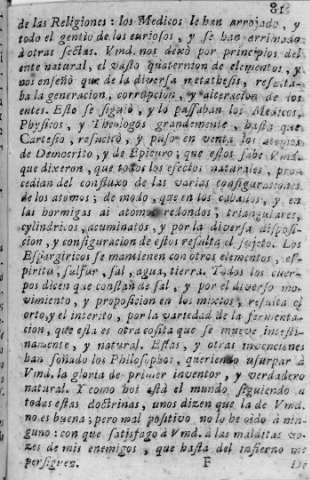 81
de las Religiones: los Medicos le han arrojado, y
todo el gentio de los curiosos, y se han arrimado
à otras sectas. Vmd. nos dexò por principios del
ente natural, el vasto quaternion de elementos, y
nos enseñò que de la diversa metathesis, resulta-
ba la generacion, corrupcion, y alteracion de los
entes. Esto se siguiò, y lo passaban los Medicos,
Physicos, y Theologos grandemente, hasta que
Cartesio, resucitò, y puso en venta los atomos
de Democrito, y de Epicuro; que estos sabe Vmd.
que dixeron, que todos los efectos naturales, pro-
cedian del confluxo de las varias configuraciones
de los atomos; de modo, que en los caballos, y en
las hormigas ai atomos redondos, triangulares,
cylindricos, acuminatos, y por la diversa disposi-
cion, y configuracion de estos resulta el sujeto. Los
Espargiricos se mantienen con otros elementos, es-
piritu, sulfur, sal, agua, tierra. Todos los cuer-
pos dicen que constan de sal, y por el diverso mo-
vimiento, y proposicion en los mixtos, resulta el
orto, y el interito, por la variedad de la fermenta-
cion, que esta es otra cosita que se mueve intesti-
namente, y natural. Estas, y otras invenciones
han soñado los Philosophos, queriendo usurpar à
Vmd. la gloria de primer inventor, y verdadero
natural. Y como hoi està el mundo siguiendo
todas estas doctrinas, unos dizen que la de Vmd.
no es buena; pero mal positivo no lo he oìdo à nin-
guno: con que satisfago à Vmd. à las malditas vo-
zes de mis enemigos, que hasta del infierno me
persiguen. F De